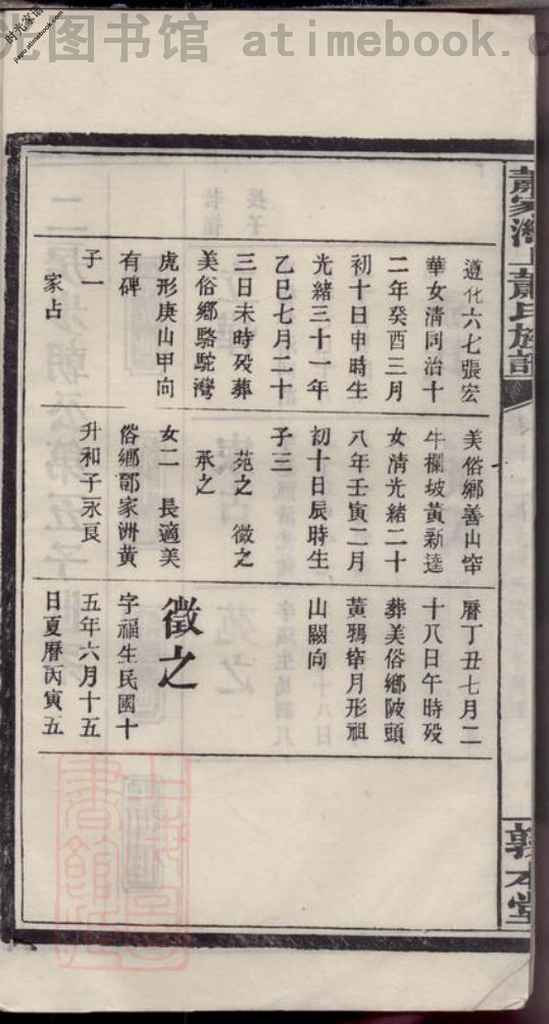 光图书馆 atimebook.c
时光家谱
蕭家灣上蕭氏族譜
敦本堂
遵化六七張宏
華女清同治十
二年癸酉三月
初十日申時生
光緒三十一年
乙巳七月二十
三日未時歿葬
美俗鄉駱駝灣
虎形庚山甲向
有碑
子一
家占
美俗鄉善山窂
牛欄坡黃新達
女清光緒二十
八年壬寅二月
初十日辰時生
子三
苑之 徵之
承之
女二 長適美
俗鄉鄒家洲黃
升和子永良
曆丁丑七月二
十八日午時歿
葬美俗鄉陂頭
黃鴉窂月形祖
山關向
徵之
字福生民國十
五年六月十五
日夏曆丙寅五